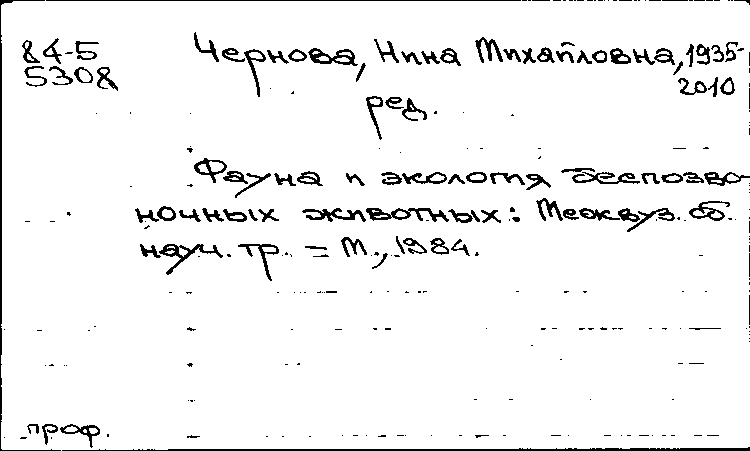 84-5
5308
Чернова, Нина Михайловна, 1935-
2010
ред.
Фауна и экология беспозво-
ночных животных: Межвуз. сб.
науч. тр. = М., 1984.
проф.